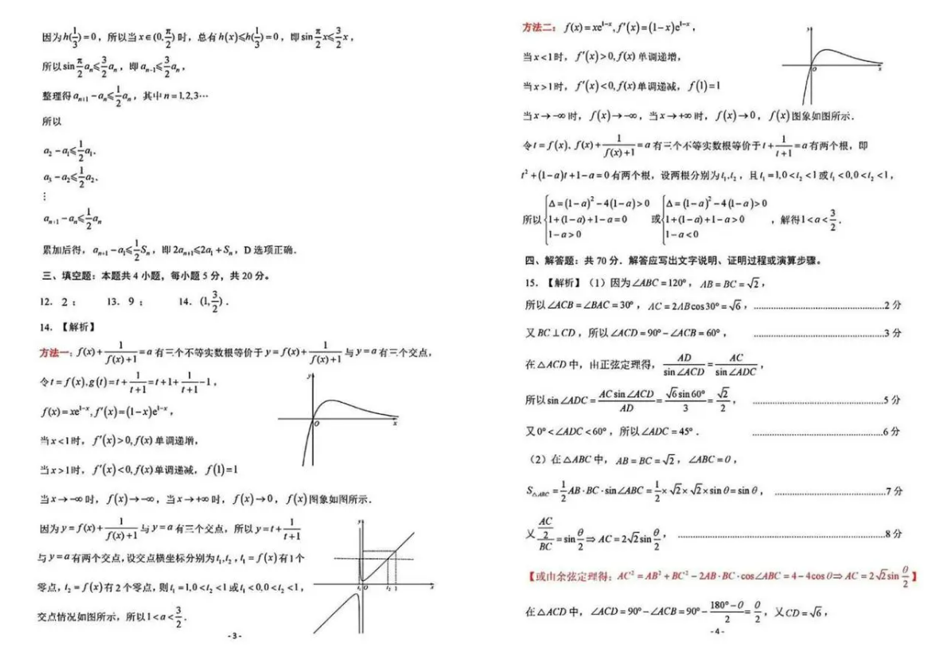 因为h(1/3)=0，所以当x∈(0,π/2)时，总有h(x)⩽h(1/3)=0，即sin π/2 x⩽3/2 x，
所以sin π/2 aₙ⩽3/2 aₙ，即aₙ₊₁⩽3/2 aₙ，
整理得aₙ₊₁−aₙ⩽1/2 aₙ，其中n=1,2,3⋯
所以
a₂−a₁⩽1/2 a₁.
a₃−a₂⩽1/2 a₂.
⋮
aₙ₊₁−aₙ⩽1/2 aₙ
累加后得，aₙ₊₁−a₁⩽1/2 Sₙ，即2aₙ₊₁⩽2a₁+Sₙ，D选项正确.
三、填空题：本题共4小题，每小题5分，共20分。
12. 2； 13. 9； 14. (1,3/2).
14.【解析】
方法一：f(x)+1/(f(x)+1)=a有三个不等实数根等价于y=f(x)+1/(f(x)+1)与y=a有三个交点，
令t=f(x),g(t)=t+1/(t+1)=t+1+1/(t+1)−1，
f(x)=xe¹⁻ˣ,f′(x)=(1−x)e¹⁻ˣ，
当x<1时，f′(x)>0,f(x)单调递增，
当x>1时，f′(x)<0,f(x)单调递减，f(1)=1
当x→−∞时，f(x)→−∞，当x→+∞时，f(x)→0，f(x)图象如图所示.
因为y=f(x)+1/(f(x)+1)与y=a有三个交点，所以y=t+1/(t+1)
与y=a有两个交点,设交点横坐标分别为t₁,t₂，t₁=f(x)有1个
零点，t₂=f(x)有2个零点，则t₁=1,0<t₂<1或t₁<0,0<t₂<1，
交点情况如图所示，所以1<a<3/2.
-3-
方法二：f(x)=xe¹⁻ˣ,f′(x)=(1−x)e¹⁻ˣ，
当x<1时，f′(x)>0,f(x)单调递增，
当x>1时，f′(x)<0,f(x)单调递减，f(1)=1
当x→−∞时，f(x)→−∞，当x→+∞时，f(x)→0，f(x)图象如图所示.
令t=f(x),f(x)+1/(f(x)+1)=a有三个不等实数根等价于t+1/(t+1)=a有两个根，即
t²+(1−a)t+1−a=0有两个根，设两根分别为t₁,t₂，且t₁=1,0<t₂<1或t₁<0,0<t₂<1，
所以{Δ=(1−a)²−4(1−a)>0 1+(1−a)+1−a=0 1−a>0 或{Δ=(1−a)²−4(1−a)>0 1+(1−a)+1−a>0 1−a<0，解得1<a<3/2.
四、解答题：共70分．解答应写出文字说明、证明过程或演算步骤。
15.【解析】（1）因为∠ABC=120°，AB=BC=√2，
所以∠ACB=∠BAC=30°，AC=2ABcos30°=√6，……2分
又BC⊥CD，所以∠ACD=90°−∠ACB=60°，……3分
在△ACD中，由正弦定理得，AD/sin∠ACD=AC/sin∠ADC，
所以sin∠ADC=ACsin∠ACD/AD=√6sin60°/3=√2/2，……5分
又0°<∠ADC<60°，所以∠ADC=45°．……6分
（2）在△ABC中，AB=BC=√2，∠ABC=θ，
S△ABC=1/2 AB·BC·sin∠ABC=1/2×√2×√2×sinθ=sinθ，……7分
又(AC/2)/BC=sin θ/2⇒AC=2√2sin θ/2，……8分
【或由余弦定理得：AC²=AB²+BC²−2AB·BC·cos∠ABC=4−4cosθ⇒AC=2√2sin θ/2】
在△ACD中，∠ACD=90°−∠ACB=90°−(180°−θ)/2=θ/2，又CD=√6，
-4-